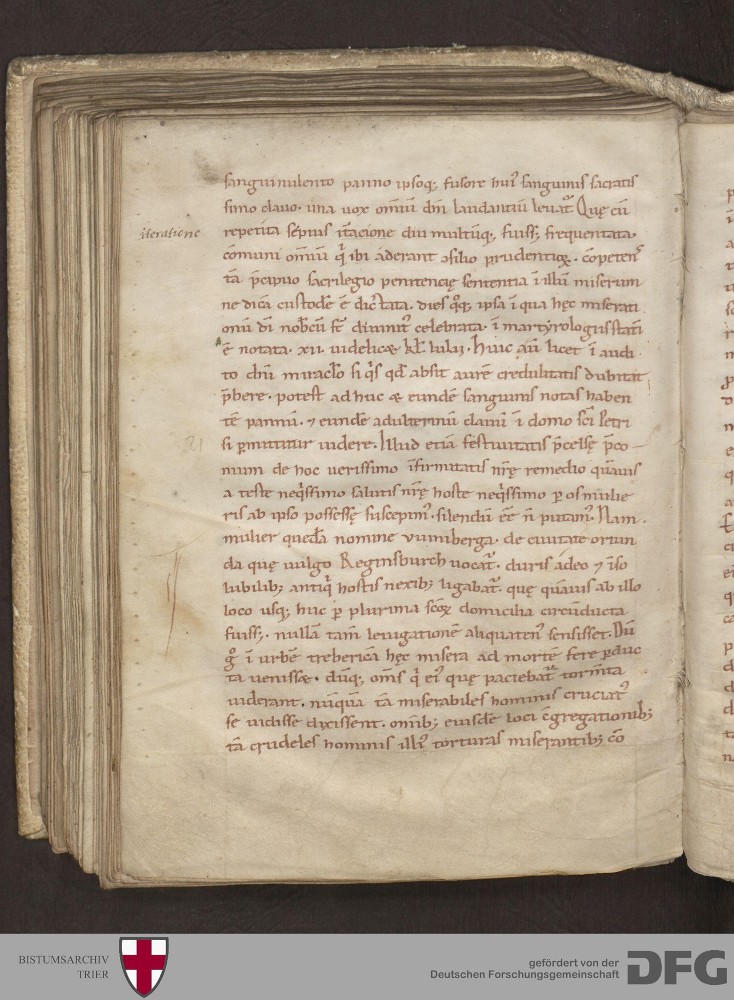 sanguinulento panno ipsoq; fusore hui᷒ sanguinis sacratis
simo clauo. una uox om̄iū dn̄i laudantiū leuat᷒ Quę cū
iteratione
repetita sępius itacione diu multūq; fuiss; frequentata.
cōmuni om̄iū q̇ ibi aderant ꝯsilio prudentioꝝ. cōpetens
tā p̄cipuo sacrilegio penitencię sententia ī illū miserum
ne dicā custodē ē dictata. dies q̊q; ipsa ī qua hęc miserati
oniū dī nobcū fc̄ diuinit᷒ celebrata. ī martyrologiis statī
ē notata. xii. uidelicæ kl̄ iulii. Huic aū licet ī audi
to dn̄i miraclo si q̇s qd̄ absit aurē credulitatis dubitat
p̄bere. potest ad huc & eundē sanguinis notas haben
tē pannū. ⁊ eundē adulterinū clauū ī domo sc̄i Petri
21
si ꝑmittitur uidere. Illud etiā festiuitatis p̄celsę p̄co
nium de hoc uerissimo īfirmitatis nr̄ę remedio quāuis
a teste neq̇ssimo salutis nr̄ę hoste neq̇ssimo ꝑ os mulie
ris ab ipso possessę susceptū. silendū ēē n̄ putam᷒. Nam
mulier quedā nomine vuniberga. de ciuitate oriun
da que uulgo Reginsburch uocat᷒. duris adeo ⁊ īso
lubilib; antiq̇ hostis nexib; ligabat᷒. quę quāuis ab illo
loco usq; huc ꝑ plurima sc̄oꝝ domicilia circūducta
fuiss;. nullā tam̄ leuigationē aliquaten᷒ sensisset. Dū
g̊ ī urbē treberica hęc misera ad mortē fere ꝑduc
ta uenissæ. dūq; om̄s q̇ ei᷒ quę paciebat᷒ torm̄ta
uiderant. nūquā tā miserabiles hominis cruciat᷒
se uidisse dixissent. om̄ib; eiusdē loci ꝯgregationib;
tā crudeles hominis illi᷒ torturas miserantib; cō
BISTUMSARCHIV
TRIER
gefördert von der
Deutschen Forschungsgemeinschaft
DFG